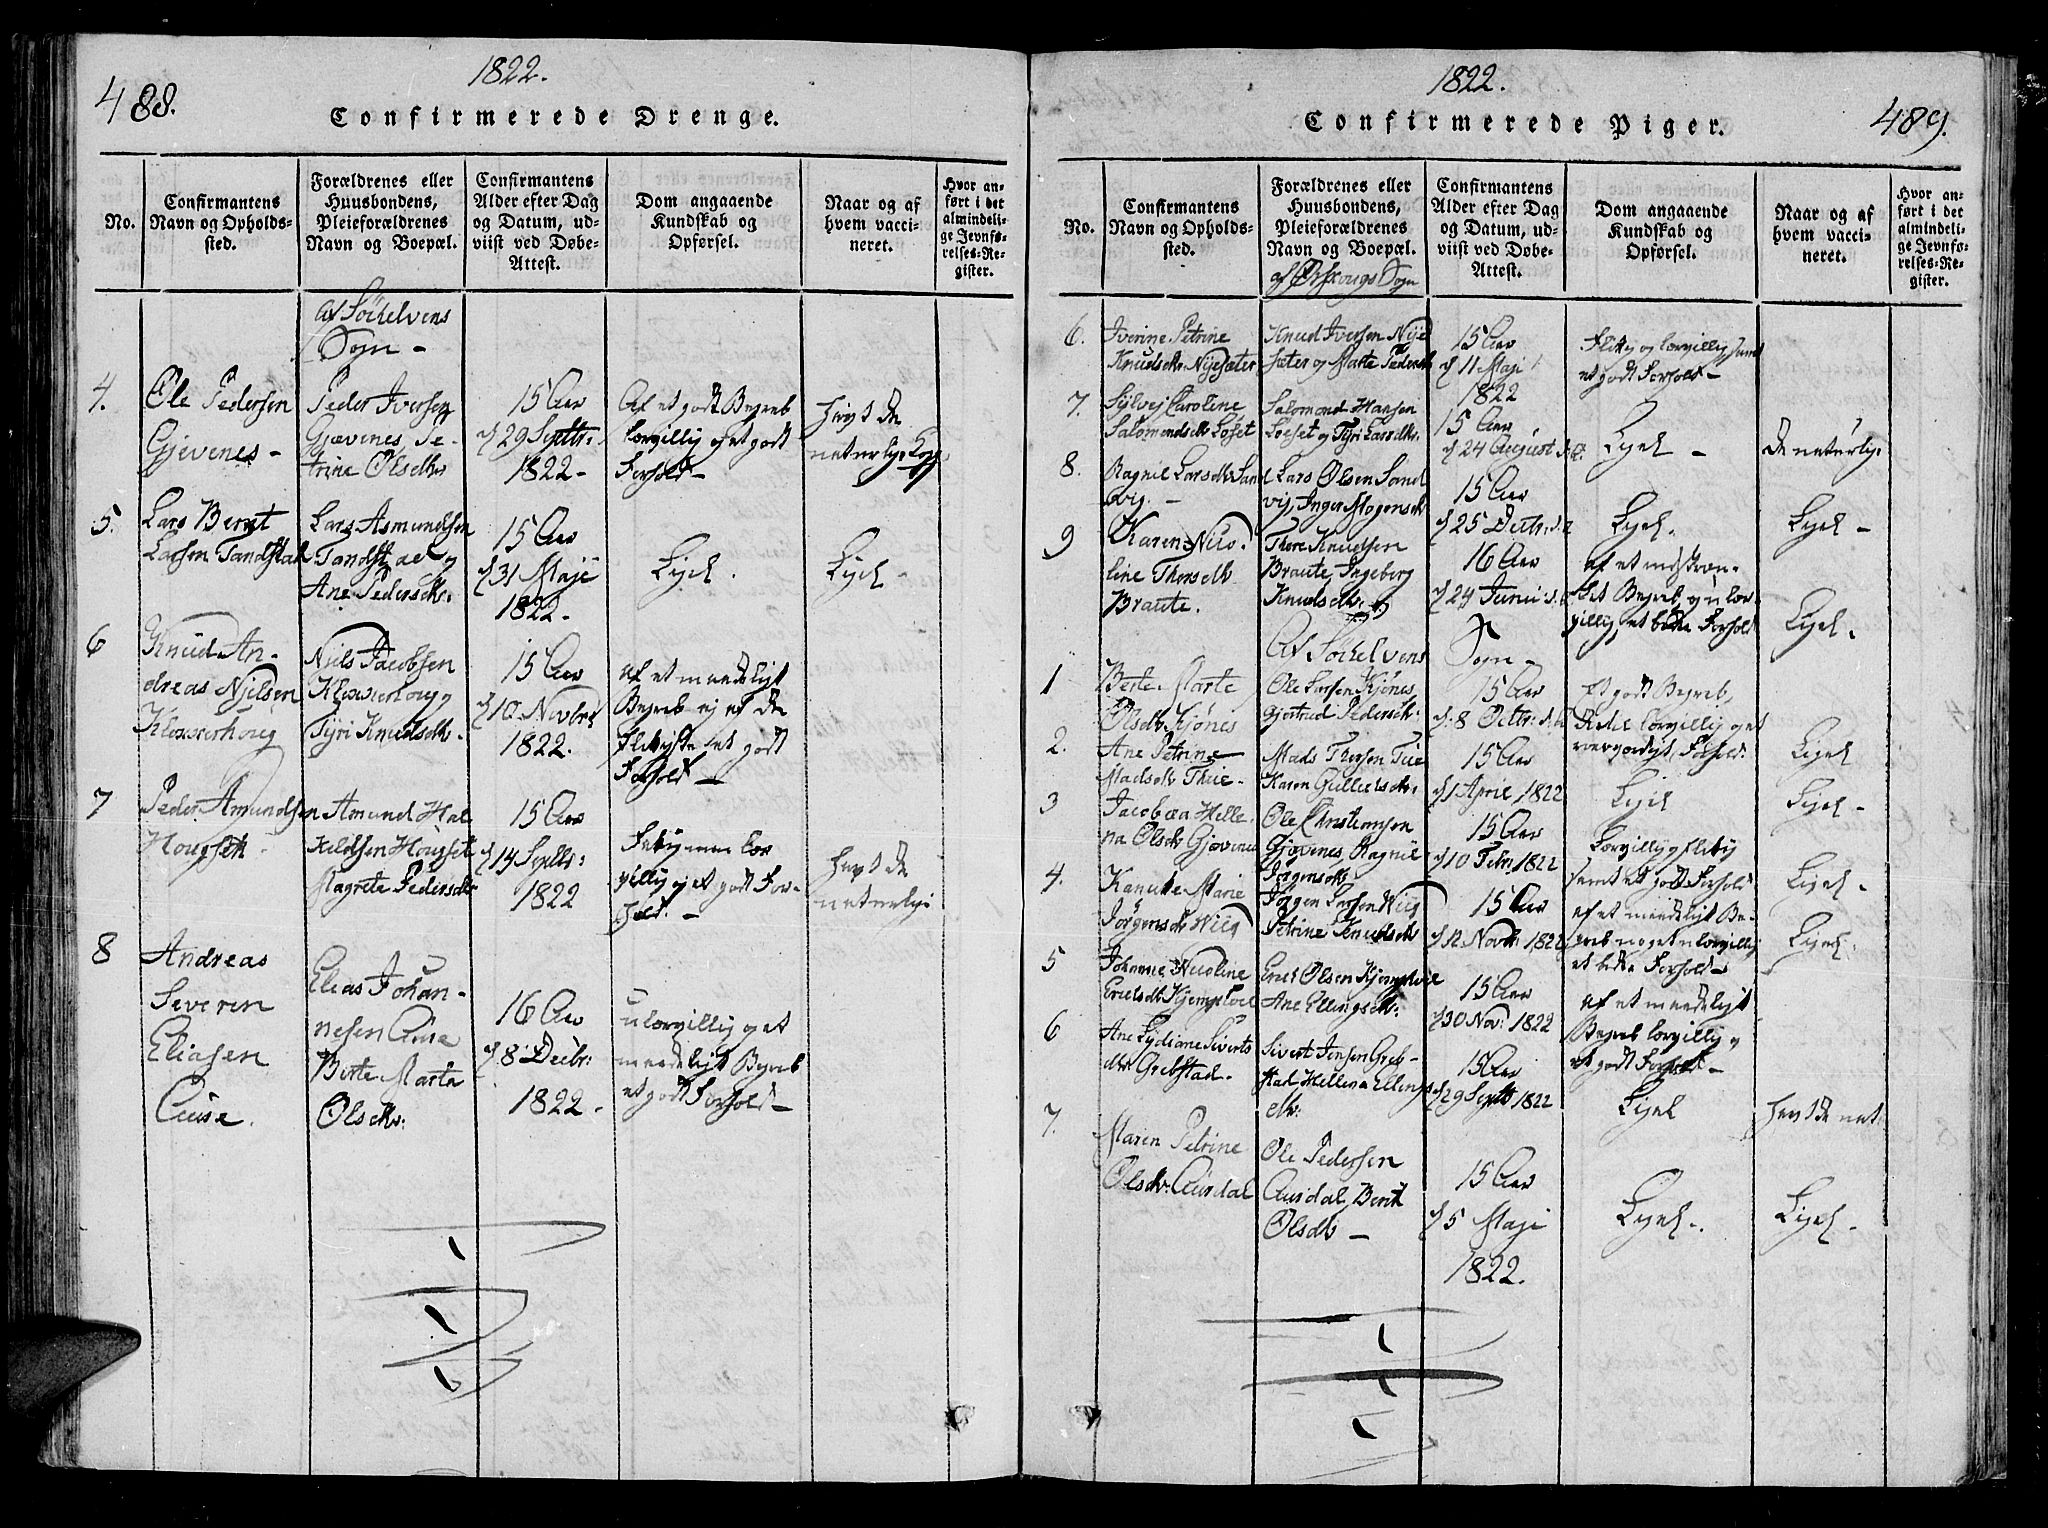 488.
1822.
Confirmerede Drenge.
No.
Confirmantens Navn og Opholds-sted.
Forældrenes eller Huusbondens, Pleieforældrenes Navn og Boepæl.
Confirmantens Alder efter Dag og Datum, ud-viist ved Døbe-Attest.
Dom angaaende Kundskab og Opførsel.
Naar og af hvem vacci-neret.
Hvor an-ført i det almindeli-ge Jevnfø-relses-Re-gister.
Af Söchelvens
Sogn -
4.
Ole Pedersen
Gjevenes -
Peder Iversen
Gjævenes Pe-
trine Olsdtr
15 Aar
d 29 Septbr:
1822 -
Af et godt Begreb
lærvillig og et godt
Forhold -
havt de
naturlige Kop.
5.
Lars Bernt
Larsen Tandstad
Lars Asmundsen
Tandstad og
Ane Pedersdtr:
15 Aar
d 31 Maji
1822.
Ligel.
Ligel -
6
Knud An-
dreas Nielsen
Niels Jacobsen
Tyri Knudsdtr.
15 Aar
d 10 Novbr:
1822.
af et maadeligt
Begreb ej af de
flitigste et godt
Forhold -
7
Peder Amundsen
Amund Hal
Magrete Pedersdtr
15 Aar
d 14 Septb:
1822
villig og et godt For-
hold. -
havt de
naturlige
8
Andreas
Severen
Eliasen
Aure.
Elias Johan-
nesen Aure
Berte Marta
Olsdtr:
16 Aar
d 8 Decbr:
1822.
ulærvillig og et
maadeligt Begreb
et godt Forhold -
1822.
489.
Confirmerede Piger.
No.
Confirmantens Navn og Opholds-sted.
Forældrenes eller Huusbondens, Pleieforældrenes Navn og Boepæl.
Confirmantens Alder efter Dag og Datum, ud-viist ved Døbe-Attest.
Dom angaaende Kundskab og Opførsel.
Naar og af hvem vacci-neret.
Hvor an-ført i det almindeli-ge Jevnfø-relses-Re-gister.
af Ørskougs Sogn
6.
Iverine Petrine
Knudsdtr Nysæter
Knud Iversen Nye
sæter og Marte Pedersdtr
15 Aar
d 11 Maji
1822
Flitig og lærvillig samt
et godt Forhold -
7.
Sylvej Caroline
Salomonsdtr Løset
Salomond Hansen
Løeset og Tyri Larsdtr.
15 Aar
d 24 August
Ligel -
De naturlige
8.
Ragnil Larsdtr Sand
vig. -
Lars Olsen Sand
vig, Inger Mogensdtr
15 Aar
d 25 Decbr:
Ligel.
Ligel -
9
Karen Nico.
line Thorsdtr
Braute.
Thore Knudsen
Braute, Ingeberg
Knudsdtr.
16 Aar
d 24 Junii
af et indskræn-
ket Begreb, og u lær
villig, et bedre Forhold
Ligel.
Af Söchelvens
Sogn -
1
Berte Marte
Olsdtr Kjønes
Ole Larsen Kjønes
Gjertrud Pedersdtr:
15 Aar
d. 8 Octbr:
et godt Begreb,
lærvillig og et
Forhold.
Ligel
2.
Ane Petrine
Madsdtr Thue -
Mads Thorsen Tue
Karen Gulliksdtr:
15 Aar
d 1 April 1822
Ligel
Ligel -
3
Jacobæa Helle.
na Olsdtr Gjævenes
Ole Christiansen
Gjævenes, Ragnil
Jørgensdtr
15 Aar
d 10 Febr. 1822
Lærvillig og flitig
samt et godt Forhold
Ligel -
4.
Kanutte Marie
Jörgensdtr
Petrine Knudsdtr
15 Aar
d 12 Novbr: 1822
af et maadeligt Be-
greb noget ulærvillig
et bedre Forhold -
Ligel.
5
Johanne Nicoline
Ericksdtr
Erick Olsen
Ane Ellingsdtr:
15 Aar
d 30 Nov: 1822
af et maadeligt
Begreb lærvillig og
et godt Forhold -
6
Ane Lydiane Siverts
dtr Grebstad.
Sivert Jensen Greb-
stad, Hellena Ellings
dtr:
15 Aar
d 29 Septb 1822
Ligel
havt de nat:
7.
Maren Petrine
Olsdtr. Aursdal
Ole Pedersen
Aursdal, Berit
Olsdtr -
15 Aar
d 5 Maji
1822.
Ligel -
Ligel -